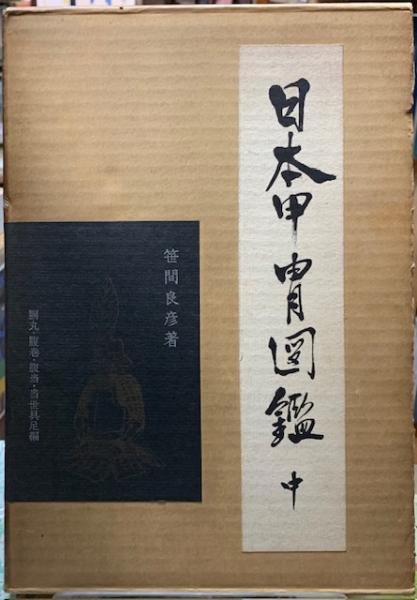 日本甲冑図鑑 中
笹間良彦著
胴丸・腹巻・腹当・当世具足編